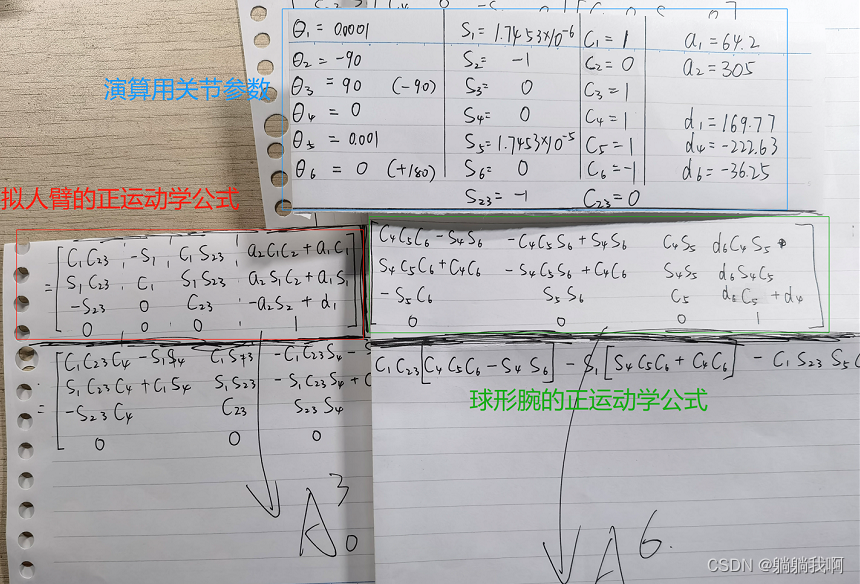 θ1 = 0.0001 S1 = 1.7453×10^-6 C1 = 1 a1 = 64.2
θ2 = -90 S2 = -1 C2 = 0 a2 = 305
演算用关节参数
θ3 = 90 (-90) S3 = 0 C3 = 1
θ4 = 0 S4 = 0 C4 = 1 d1 = 169.77
θ5 = 0.001 S5 = 1.7453×10^-5 C5 = 1 d4 = -222.63
θ6 = 0 (+180) S6 = 0 C6 = -1 d6 = -36.25
S23 = -1 C23 = 0
拟人臂的正运动学公式
C1C23 -S1 C1S23 a2C1C2 + a1C1
= S1C23 C1 S1S23 a2S1C2 + a1S1
-S23 0 C23 -a2S2 + d1
0 0 0 1
C4C5C6 - S4S6 -C4C5S6 + S4S6 C4S5 d6C4S5
S4C5C6 + C4C6 -S4C5S6 + C4C6 S4S5 d6S4C5
-S5C6 S5S6 C5 d6C5 + d4
0 0 0 1
C1C23C4 - S1S4 C1S23 -C1C23S4 - S
= S1C23C4 + C1S4 S1S23 -S1C23S4 + C
-S23C4 C23 S23S4
0 0 0
C1C23[C4C5C6 - S4S6] - S1[S4C5C6 + C4C6] - C1S23S5C
球形腕的正运动学公式
A^3_0
A^6
CSDN @躺躺我啊